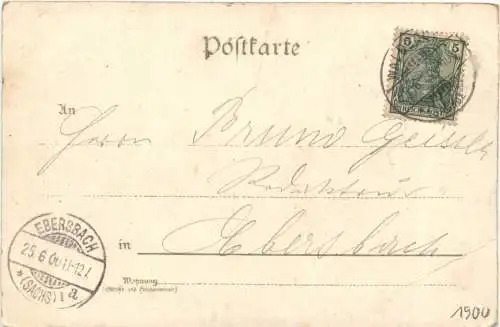 Postkarte
5 5
An
Herrn Bruno Geissler
Redakteur
EBERSBACH
25.6.00.11-12V.
* (SACHS) a
in Ebersbach
Wohnung
(Straße und Hausnummer)
1900